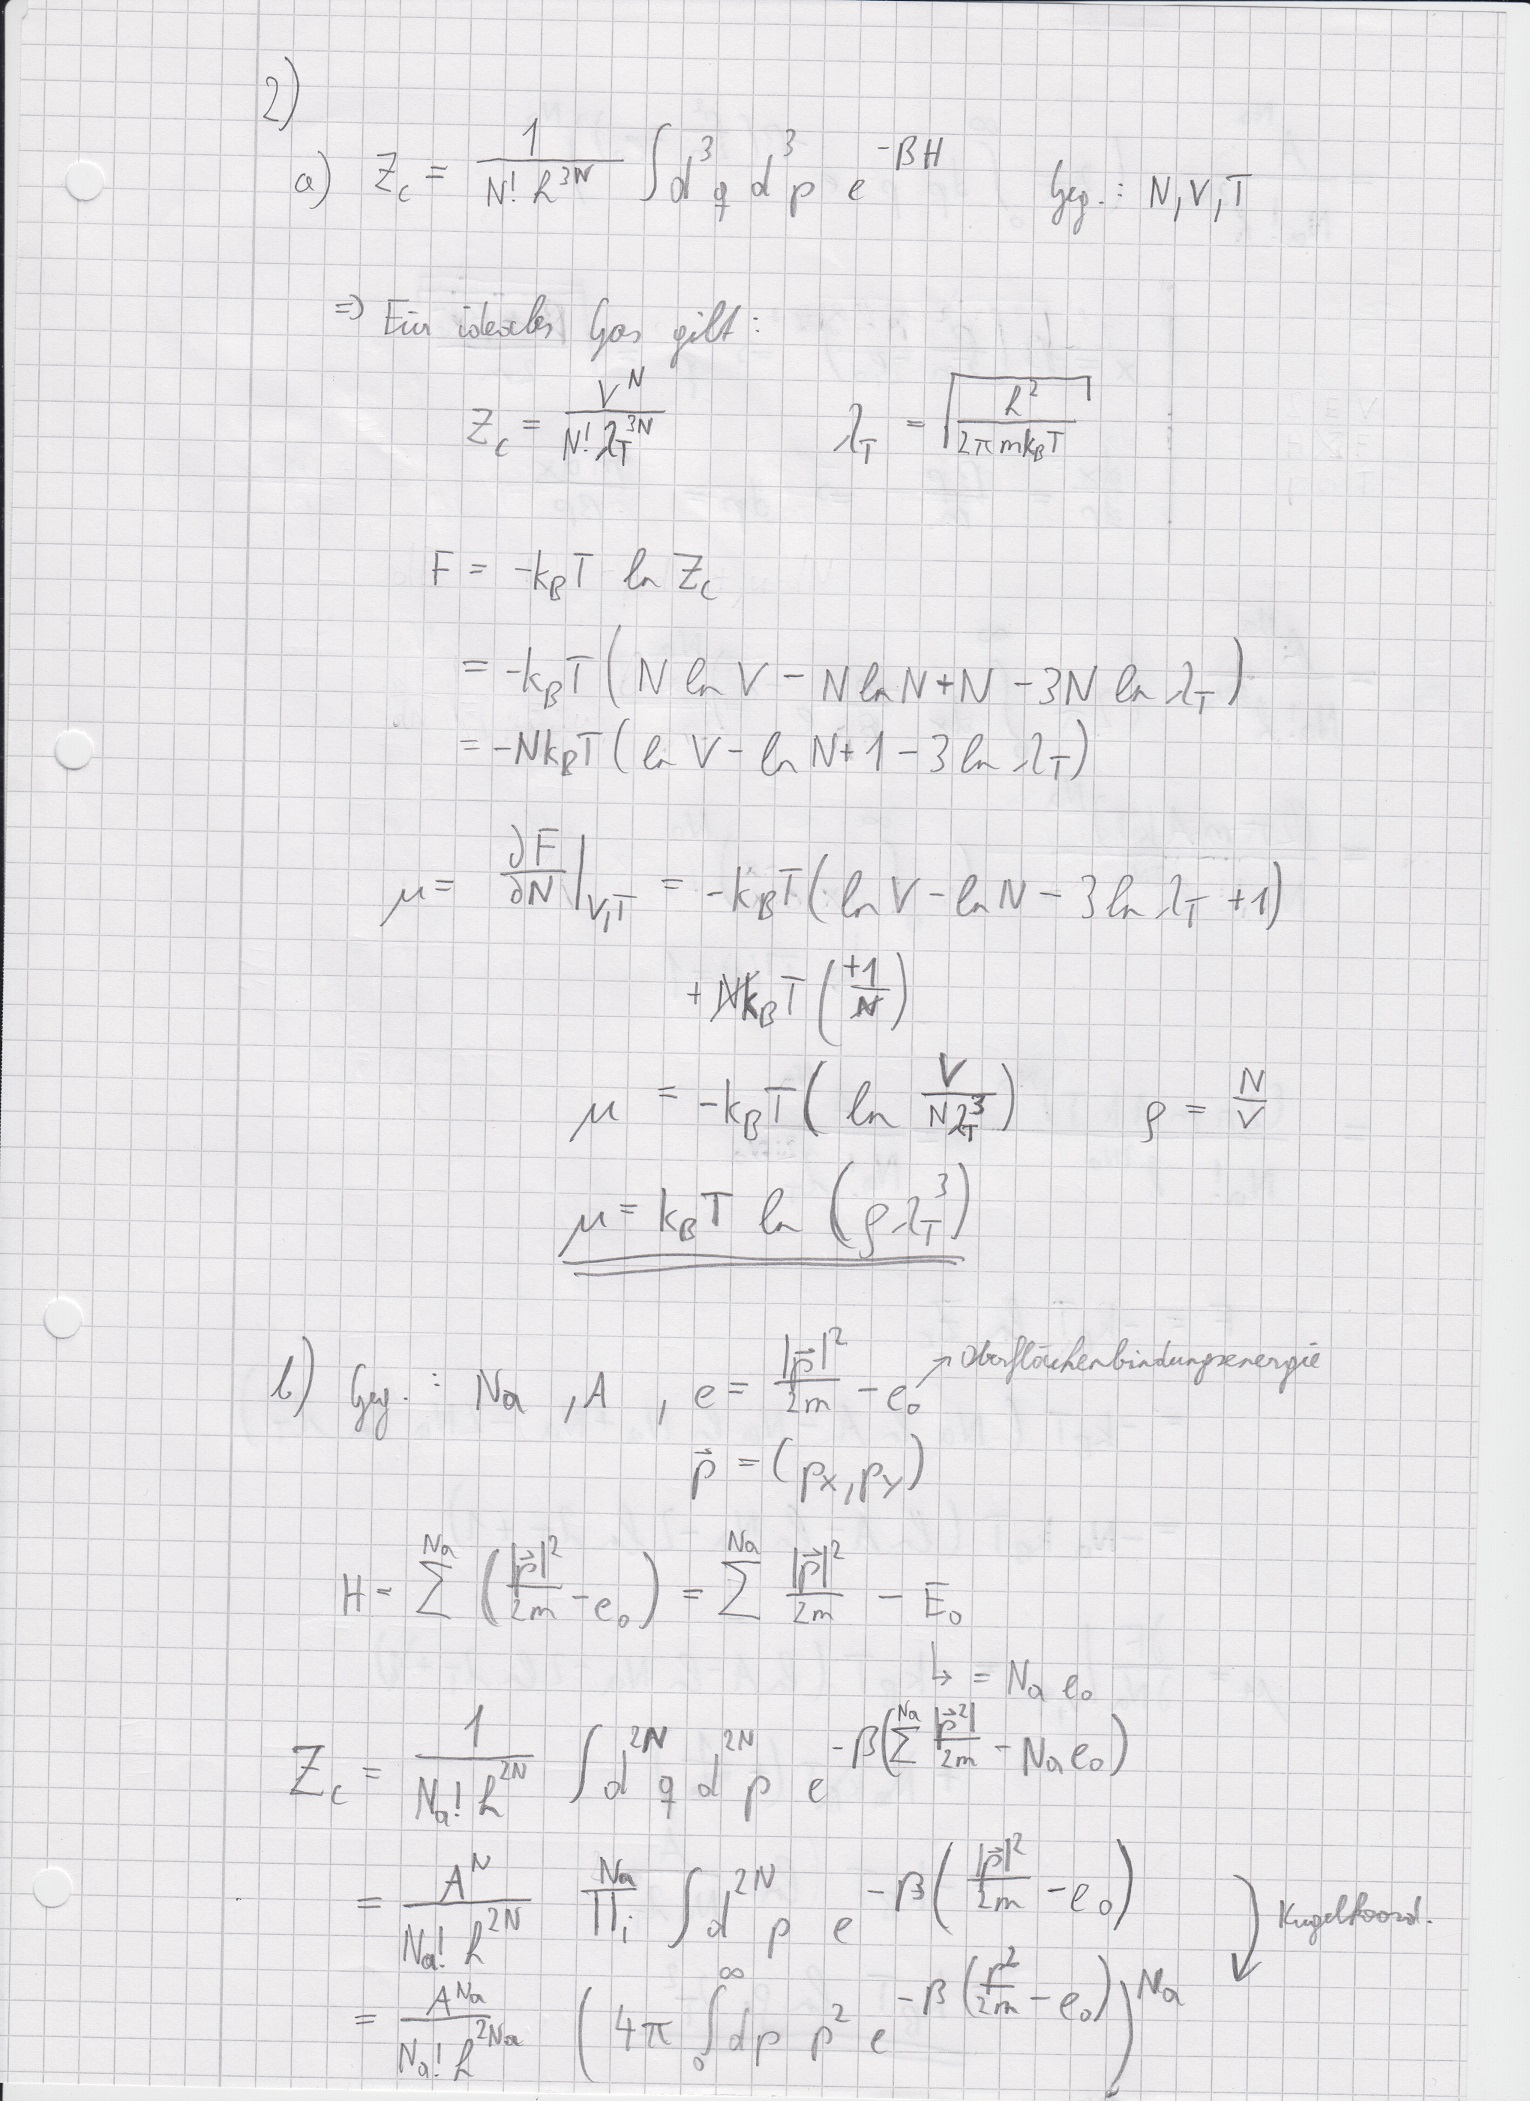 2)
a) Z_c = 1/(N! h^{3N}) ∫ d^3q d^3p e^{-βH}   Geg.: N, V, T
=> Für ideales Gas gilt:
Z_c = V^N/(N! λ_T^{3N})   λ_T = √(h²/(2π m k_B T))
F = -k_B T ln Z_c
= -k_B T (N ln V - N ln N + N - 3N ln λ_T)
= -N k_B T (ln V - ln N + 1 - 3 ln λ_T)
μ = ∂F/∂N |_{V,T} = -k_B T (ln V - ln N - 3 ln λ_T + 1)
+ N k_B T (+1/N)
μ = -k_B T (ln V/(N λ_T^3))   ρ = N/V
μ = k_B T ln (ρ λ_T^3)
b) Geg.: N_a, A, e = |p⃗|²/2m - e_0 → Oberflächenbindungsenergie
p⃗ = (p_x, p_y)
H = Σ^{N_a} (|p⃗|²/2m - e_0) = Σ^{N_a} |p⃗|²/2m - E_0
↳ = N_a e_0
Z_c = 1/(N_a! h^{2N}) ∫ d^{2N}q d^{2N}p e^{-β(Σ^{N_a} |p⃗²|/2m - N_a e_0)}
= A^N/(N_a! h^{2N}) Π_i^{N_a} ∫ d^{2N}p e^{-β(|p⃗|²/2m - e_0)}   Kugelkoord.
= A^{N_a}/(N_a! h^{2N_a}) (4π ∫_0^∞ dp p² e^{-β(p²/2m - e_0)})^{N_a}